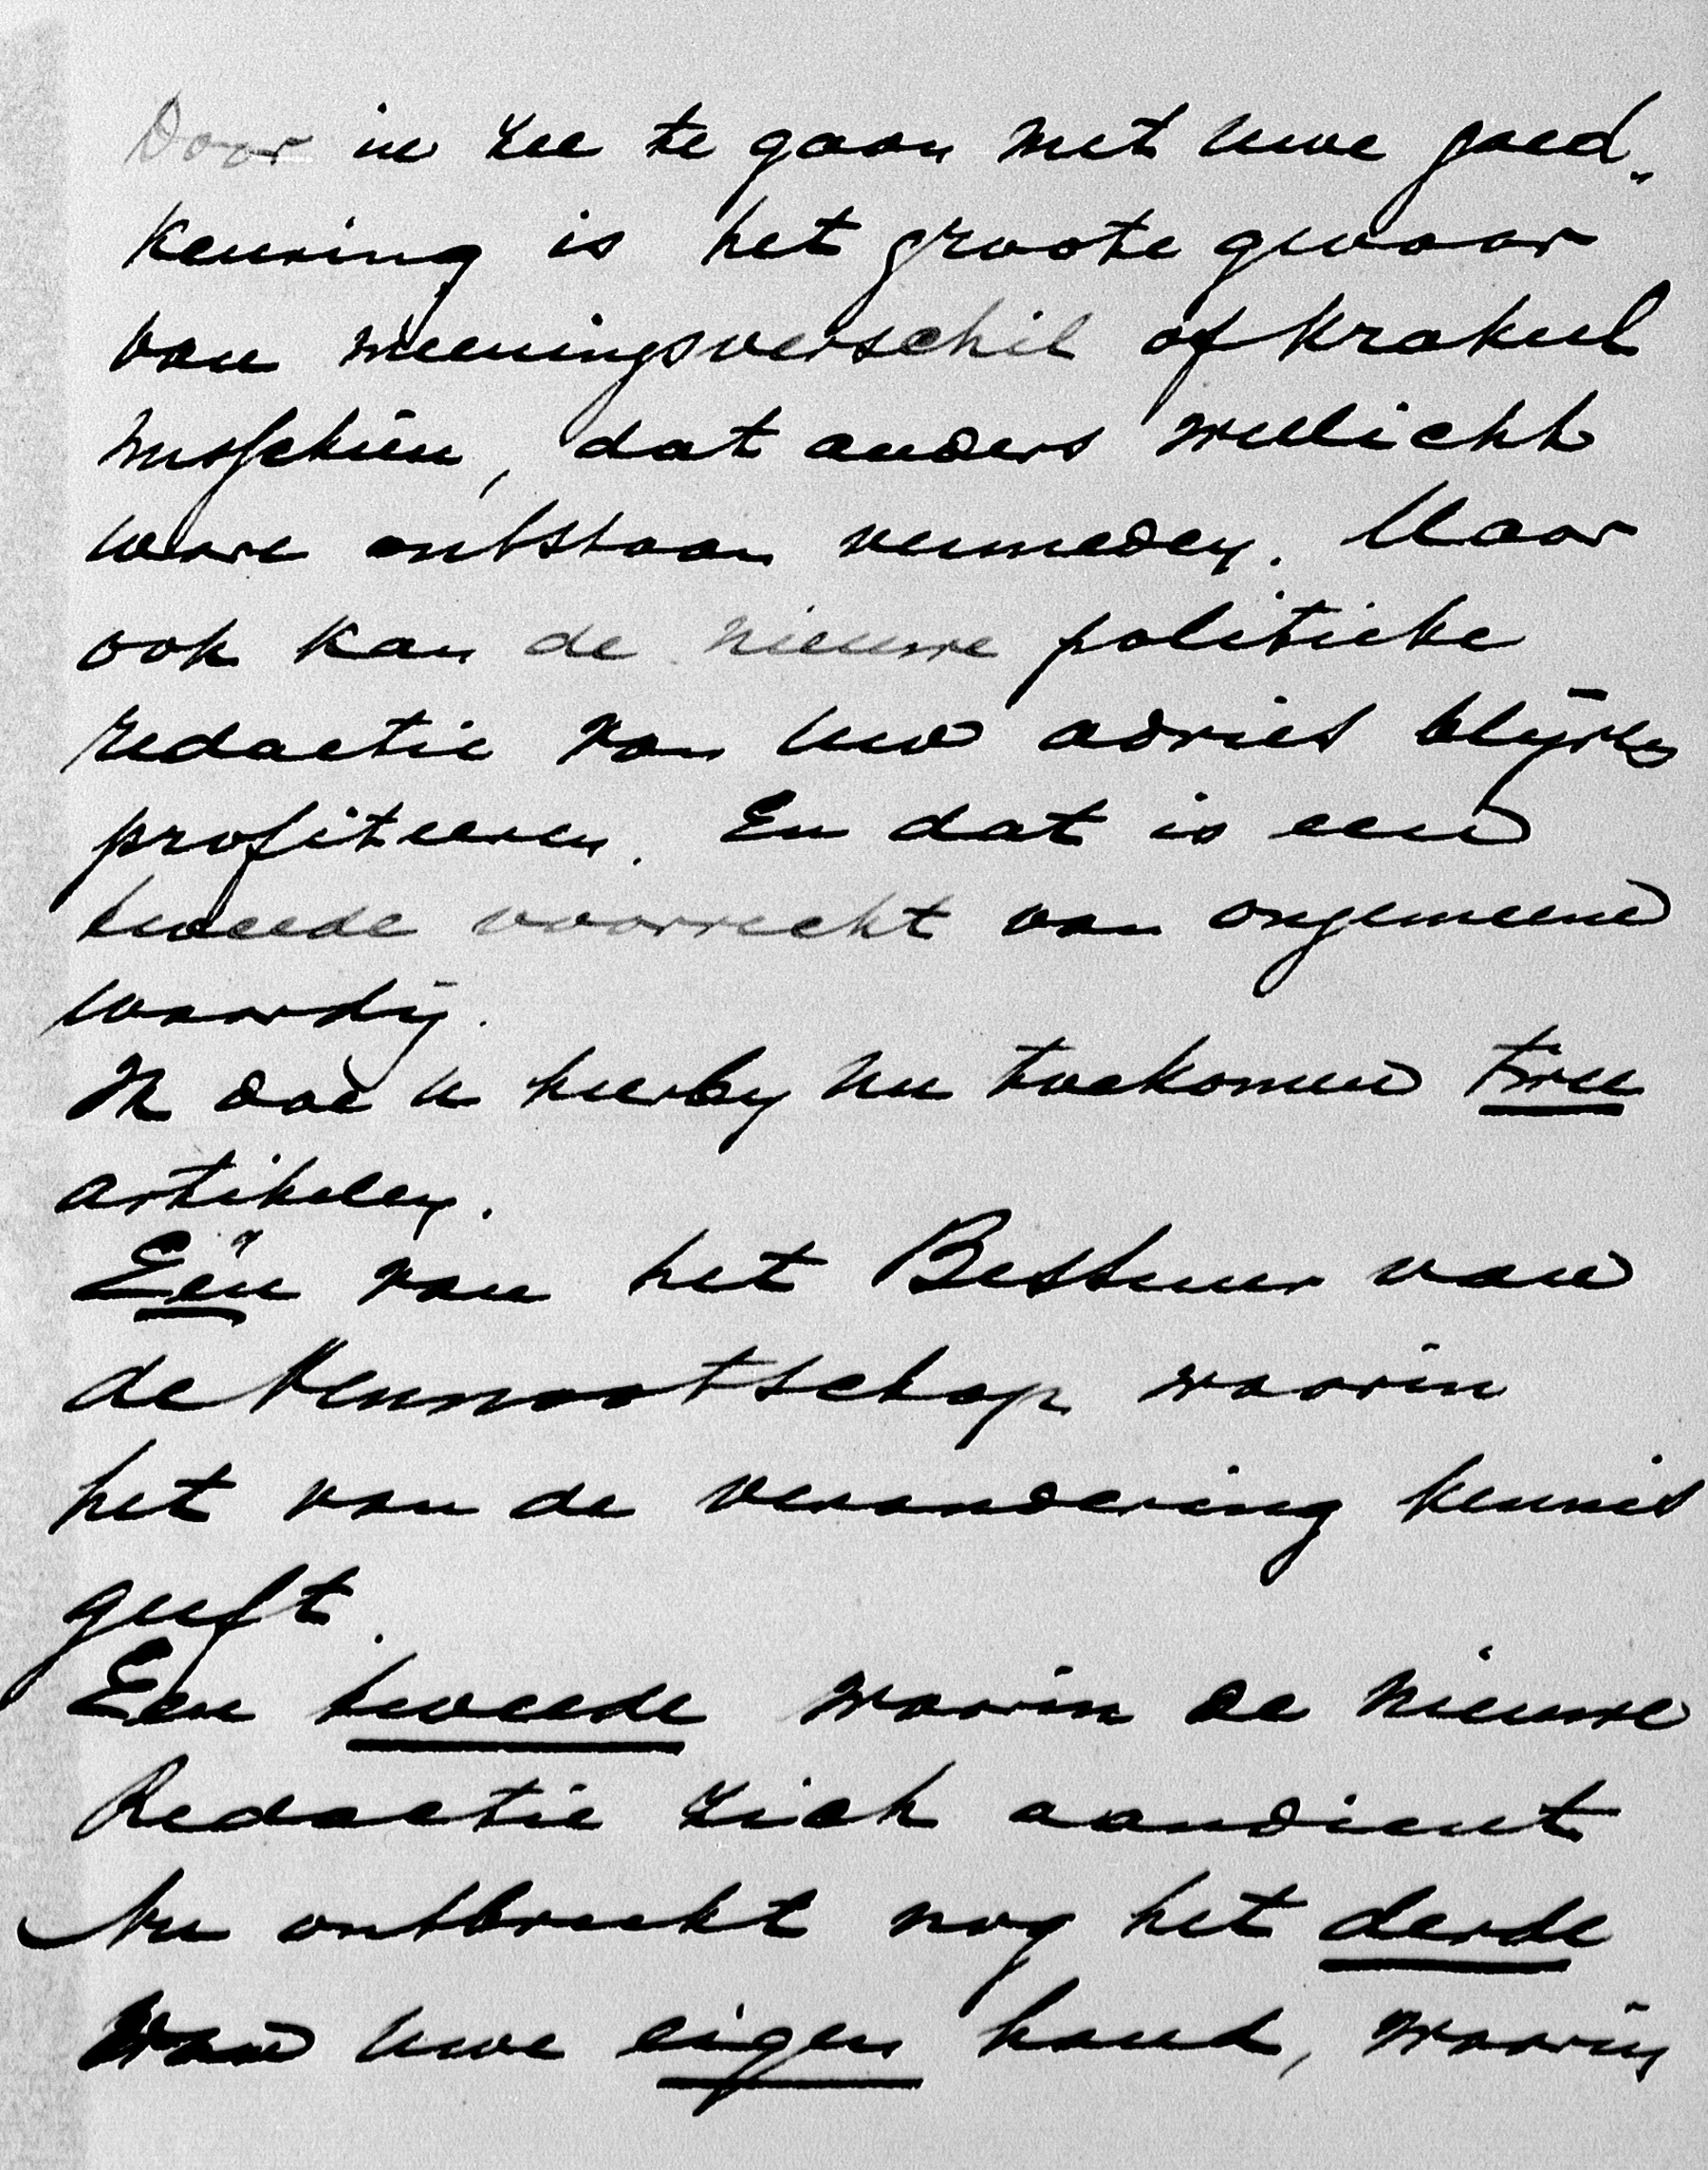 Door in zee te gaan met uwe goed„
keuring is het groote gevaar
van meeningsverschil of krakeel
misschien, dat anders wellicht
ware ontstaan vermeden. Maar
ook kan de nieuwe politieke
redactie van uw advies blijven
profiteeren. En dat is een
tweede voorrecht van ongemeene
waardij.
Ik doe u hierby nu toekomen twee
artikelen.
Eén van het Bestuur van
de Vennootschap waarin
het van de verandering kennis
geeft.
Een tweede waarin de nieuwe
Redactie zich aandient
Nu ontbreekt nog het derde
van uwe eigen hand, waarin